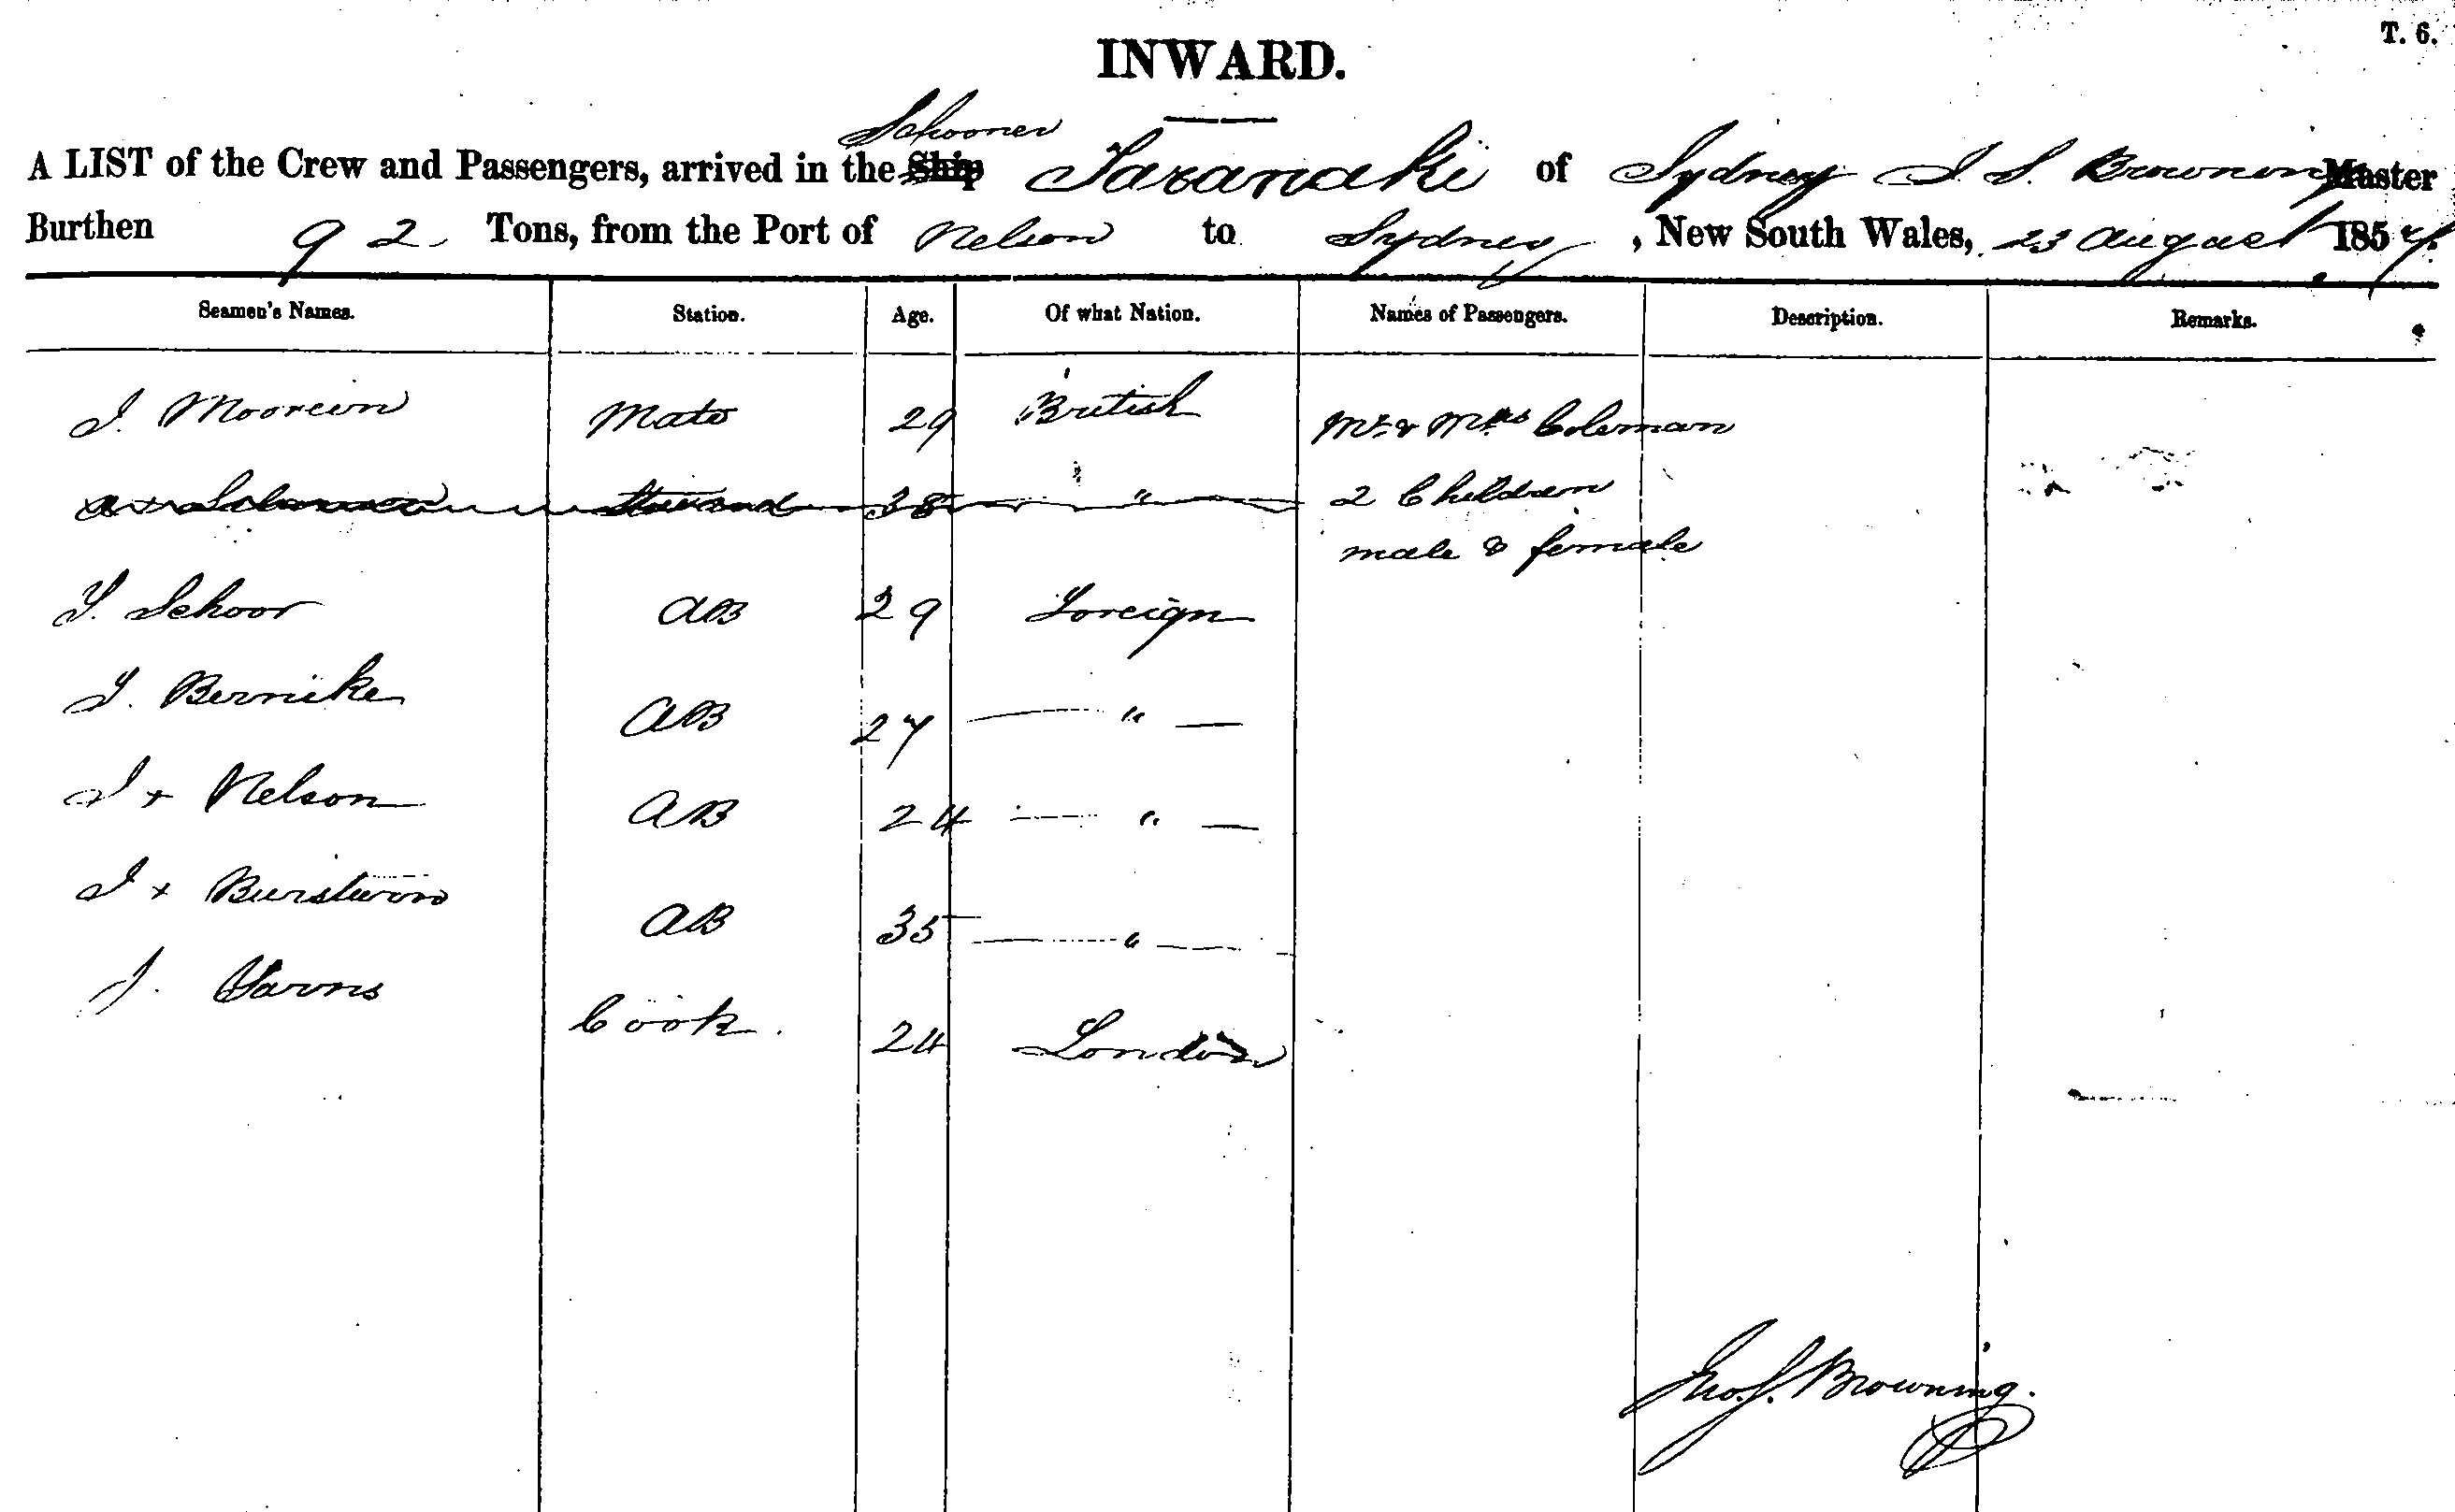 T. 6.
INWARD.
Schooner
A LIST of the Crew and Passengers, arrived in the Ship Taranaki of Sydney J. S. Browning Master
Burthen 92 Tons, from the Port of Nelson to Sydney, New South Wales, 23 August 1857.
Seamen's Names. Station. Age. Of what Nation. Names of Passengers. Description. Remarks.
J. Mate 29 British Mr & Mrs Coleman
Steward 38 " 2 Children
male & female
J. Schoor AB 29 Foreign
J. Bernike AB 27 "
J + Nelson AB 24 "
J + AB 35 "
J. Cook. 24 London
Jno. S. Browning.